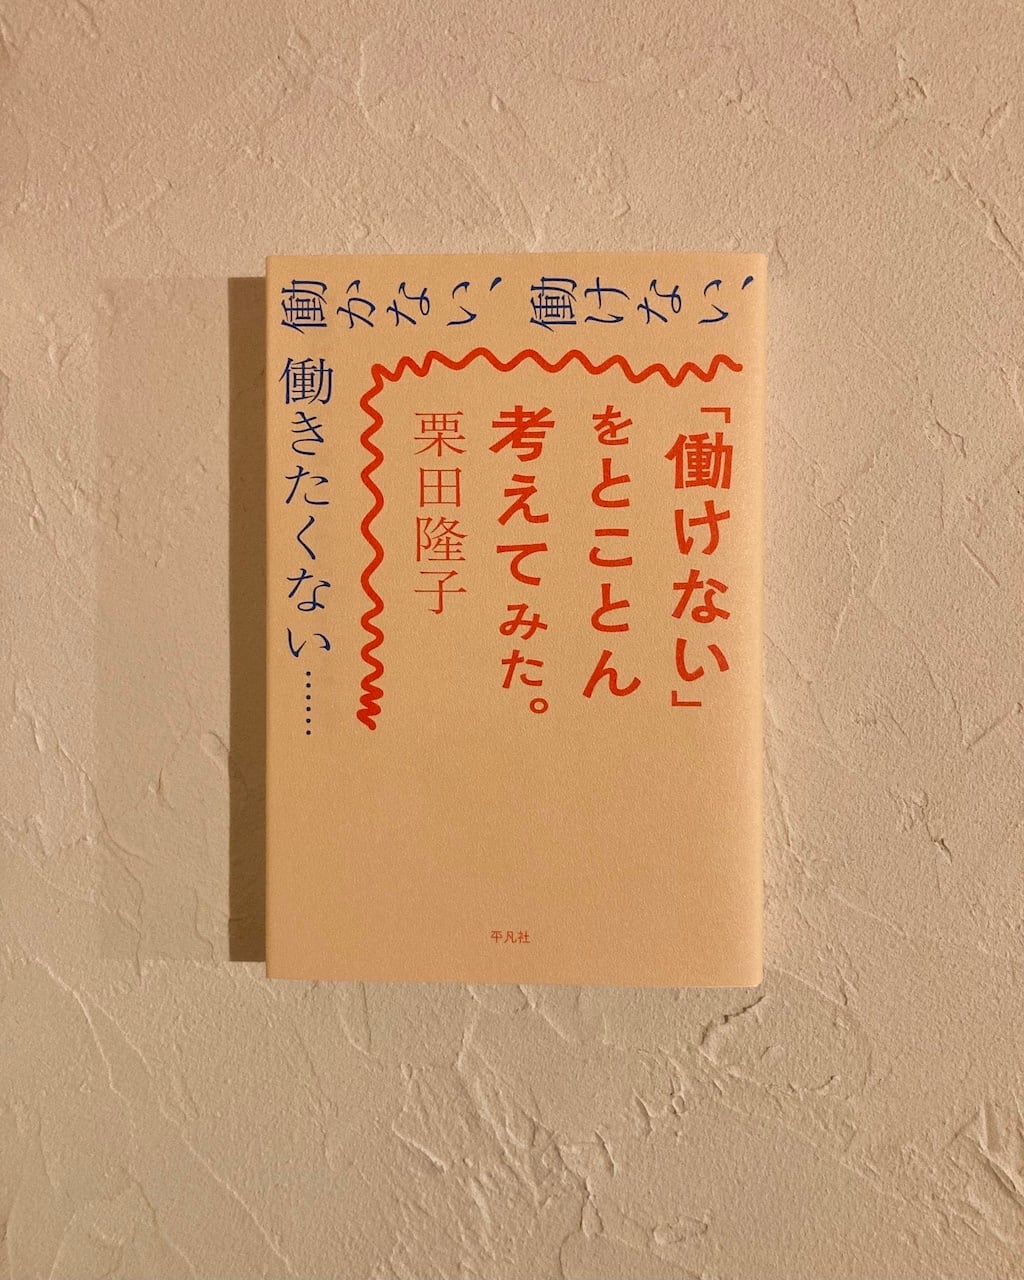 働かない、働けない、
働きたくない……
「働けない」
をとことん
考えてみた。
栗田隆子
平凡社